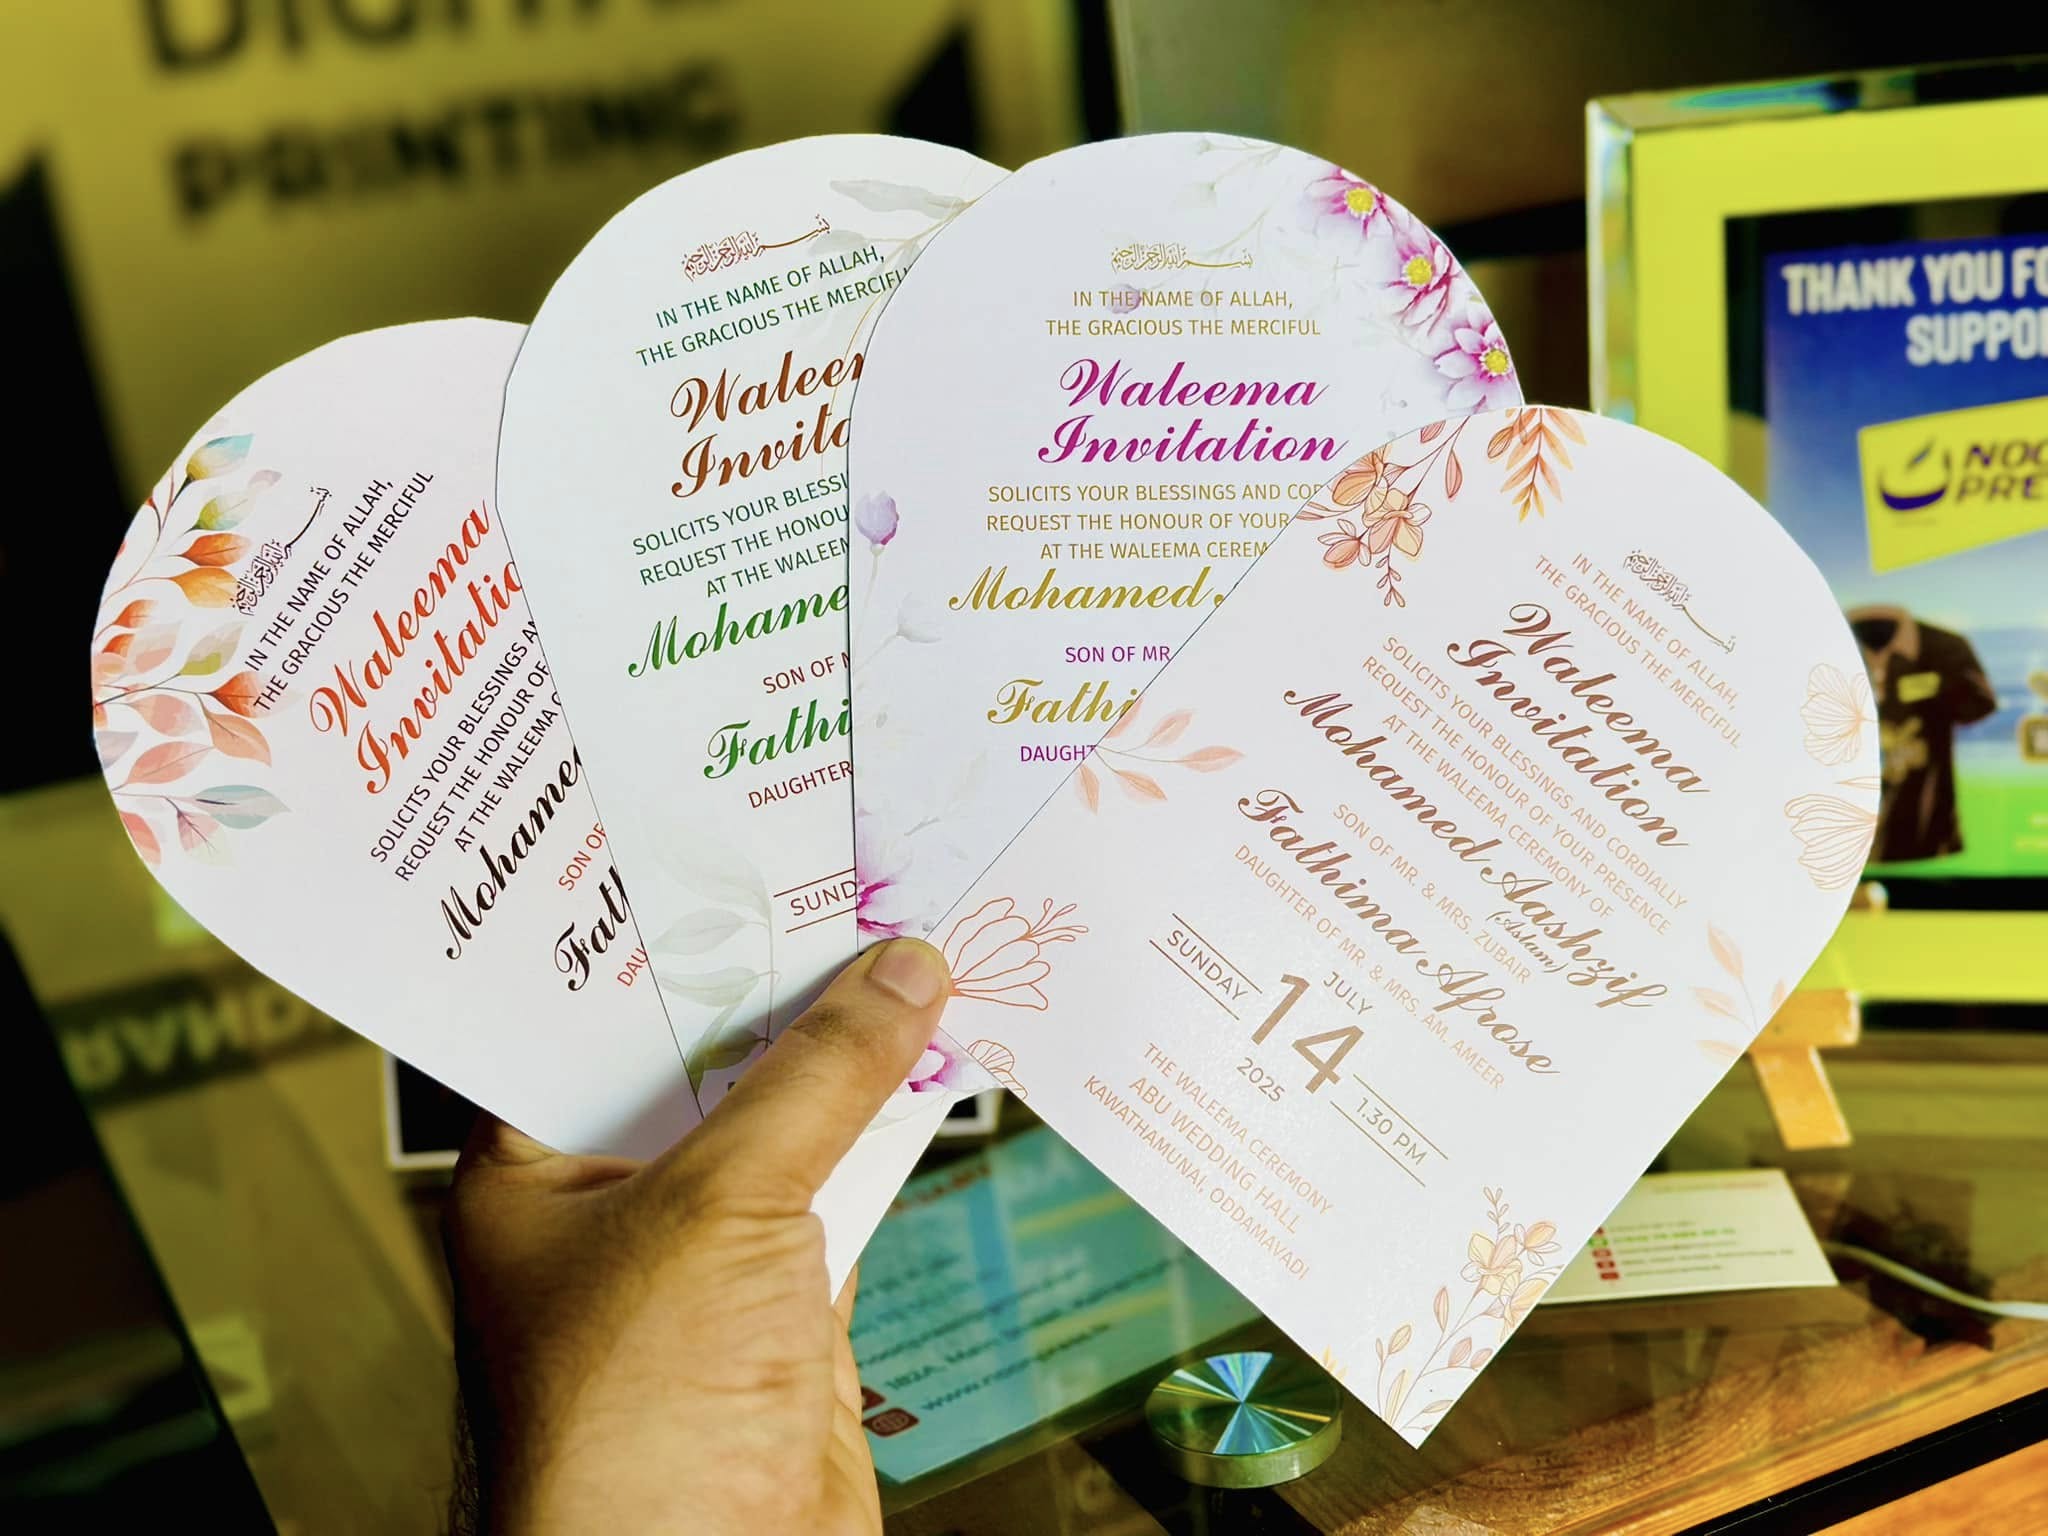 DIGITAL
PRINTING
بسم الله الرحمن الرحيم
IN THE NAME OF ALLAH,
THE GRACIOUS THE MERCIFUL
Waleema
Invitatio
SOLICITS YOUR BLESSINGS AN
REQUEST THE HONOUR OF
AT THE WALEEMA C
Mohame
SON OF
Fath
DAU
بسم الله الرحمن الرحيم
IN THE NAME OF ALLAH,
THE GRACIOUS THE MERCIFU
Waleem
Invita
SOLICITS YOUR BLESSI
REQUEST THE HONOU
AT THE WALEEM
Mohame
SON OF M
Fathi
DAUGHTER
SUND
بسم الله الرحمن الرحيم
IN THE NAME OF ALLAH,
THE GRACIOUS THE MERCIFUL
Waleema
Invitation
SOLICITS YOUR BLESSINGS AND COR
REQUEST THE HONOUR OF YOUR
AT THE WALEEMA CEREM
Mohamed
SON OF MR
Fathi
DAUGHT
بسم الله الرحمن الرحيم
IN THE NAME OF ALLAH,
THE GRACIOUS THE MERCIFUL
Waleema
Invitation
SOLICITS YOUR BLESSINGS AND CORDIALLY
REQUEST THE HONOUR OF YOUR PRESENCE
AT THE WALEEMA CEREMONY OF
Mohamed Aashzif
(Aslam)
SON OF MR. & MRS. ZUBAIR
Fathima Afrose
DAUGHTER OF MR. & MRS. AM. AMEER
JULY
SUNDAY 14 1.30 PM
2025
THE WALEEMA CEREMONY
ABU WEDDING HALL
KAWATHAMUNAI, ODDAMAVADI
THANK YOU FO
SUPPO
NOO
PRE